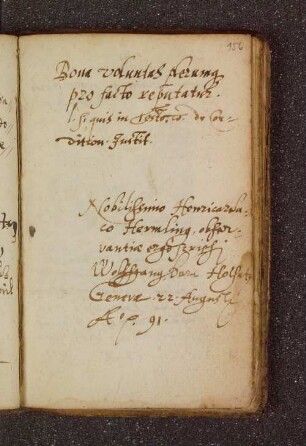 156
Bona voluntas plerumq
pro facto reputatur.
l. si quis in de Con-
dition. Instit.
Nobilissimo Henrico
co Hermling obser-
vantiæ ergò scripsi
Wolffgang Holsat
Genevæ 22 Augusti
Aº. 91.